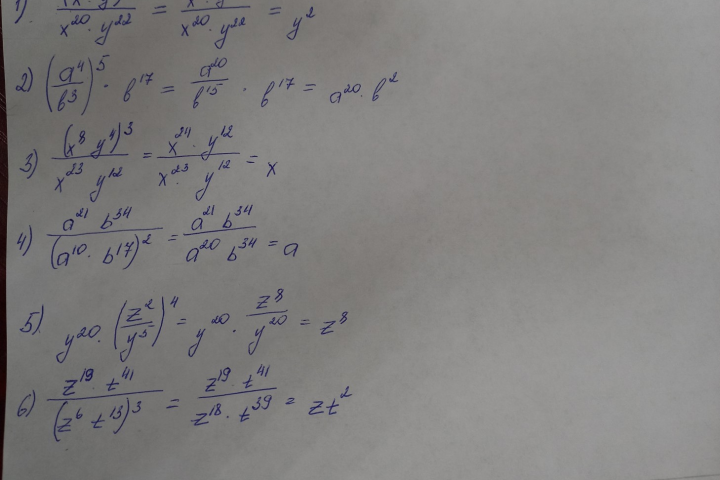 1) / x²⁰ · y²² = / x²⁰ · y²² = y²
2) (a⁴/b³)⁵ · b¹⁷ = a²⁰/b¹⁵ · b¹⁷ = a²⁰ · b²
3) (x⁸ y⁴)³ / x²³ y¹² = x²⁴ · y¹² / x²³ · y¹² = x
4) a²¹ b³⁴ / (a¹⁰ · b¹⁷)² = a²¹ b³⁴ / a²⁰ b³⁴ = a
5) y²⁰ · (z²/y⁵)⁴ = y²⁰ · z⁸/y²⁰ = z⁸
6) z¹⁹ · t⁴¹ / (z⁶ t¹³)³ = z¹⁹ · t⁴¹ / z¹⁸ · t³⁹ = zt²